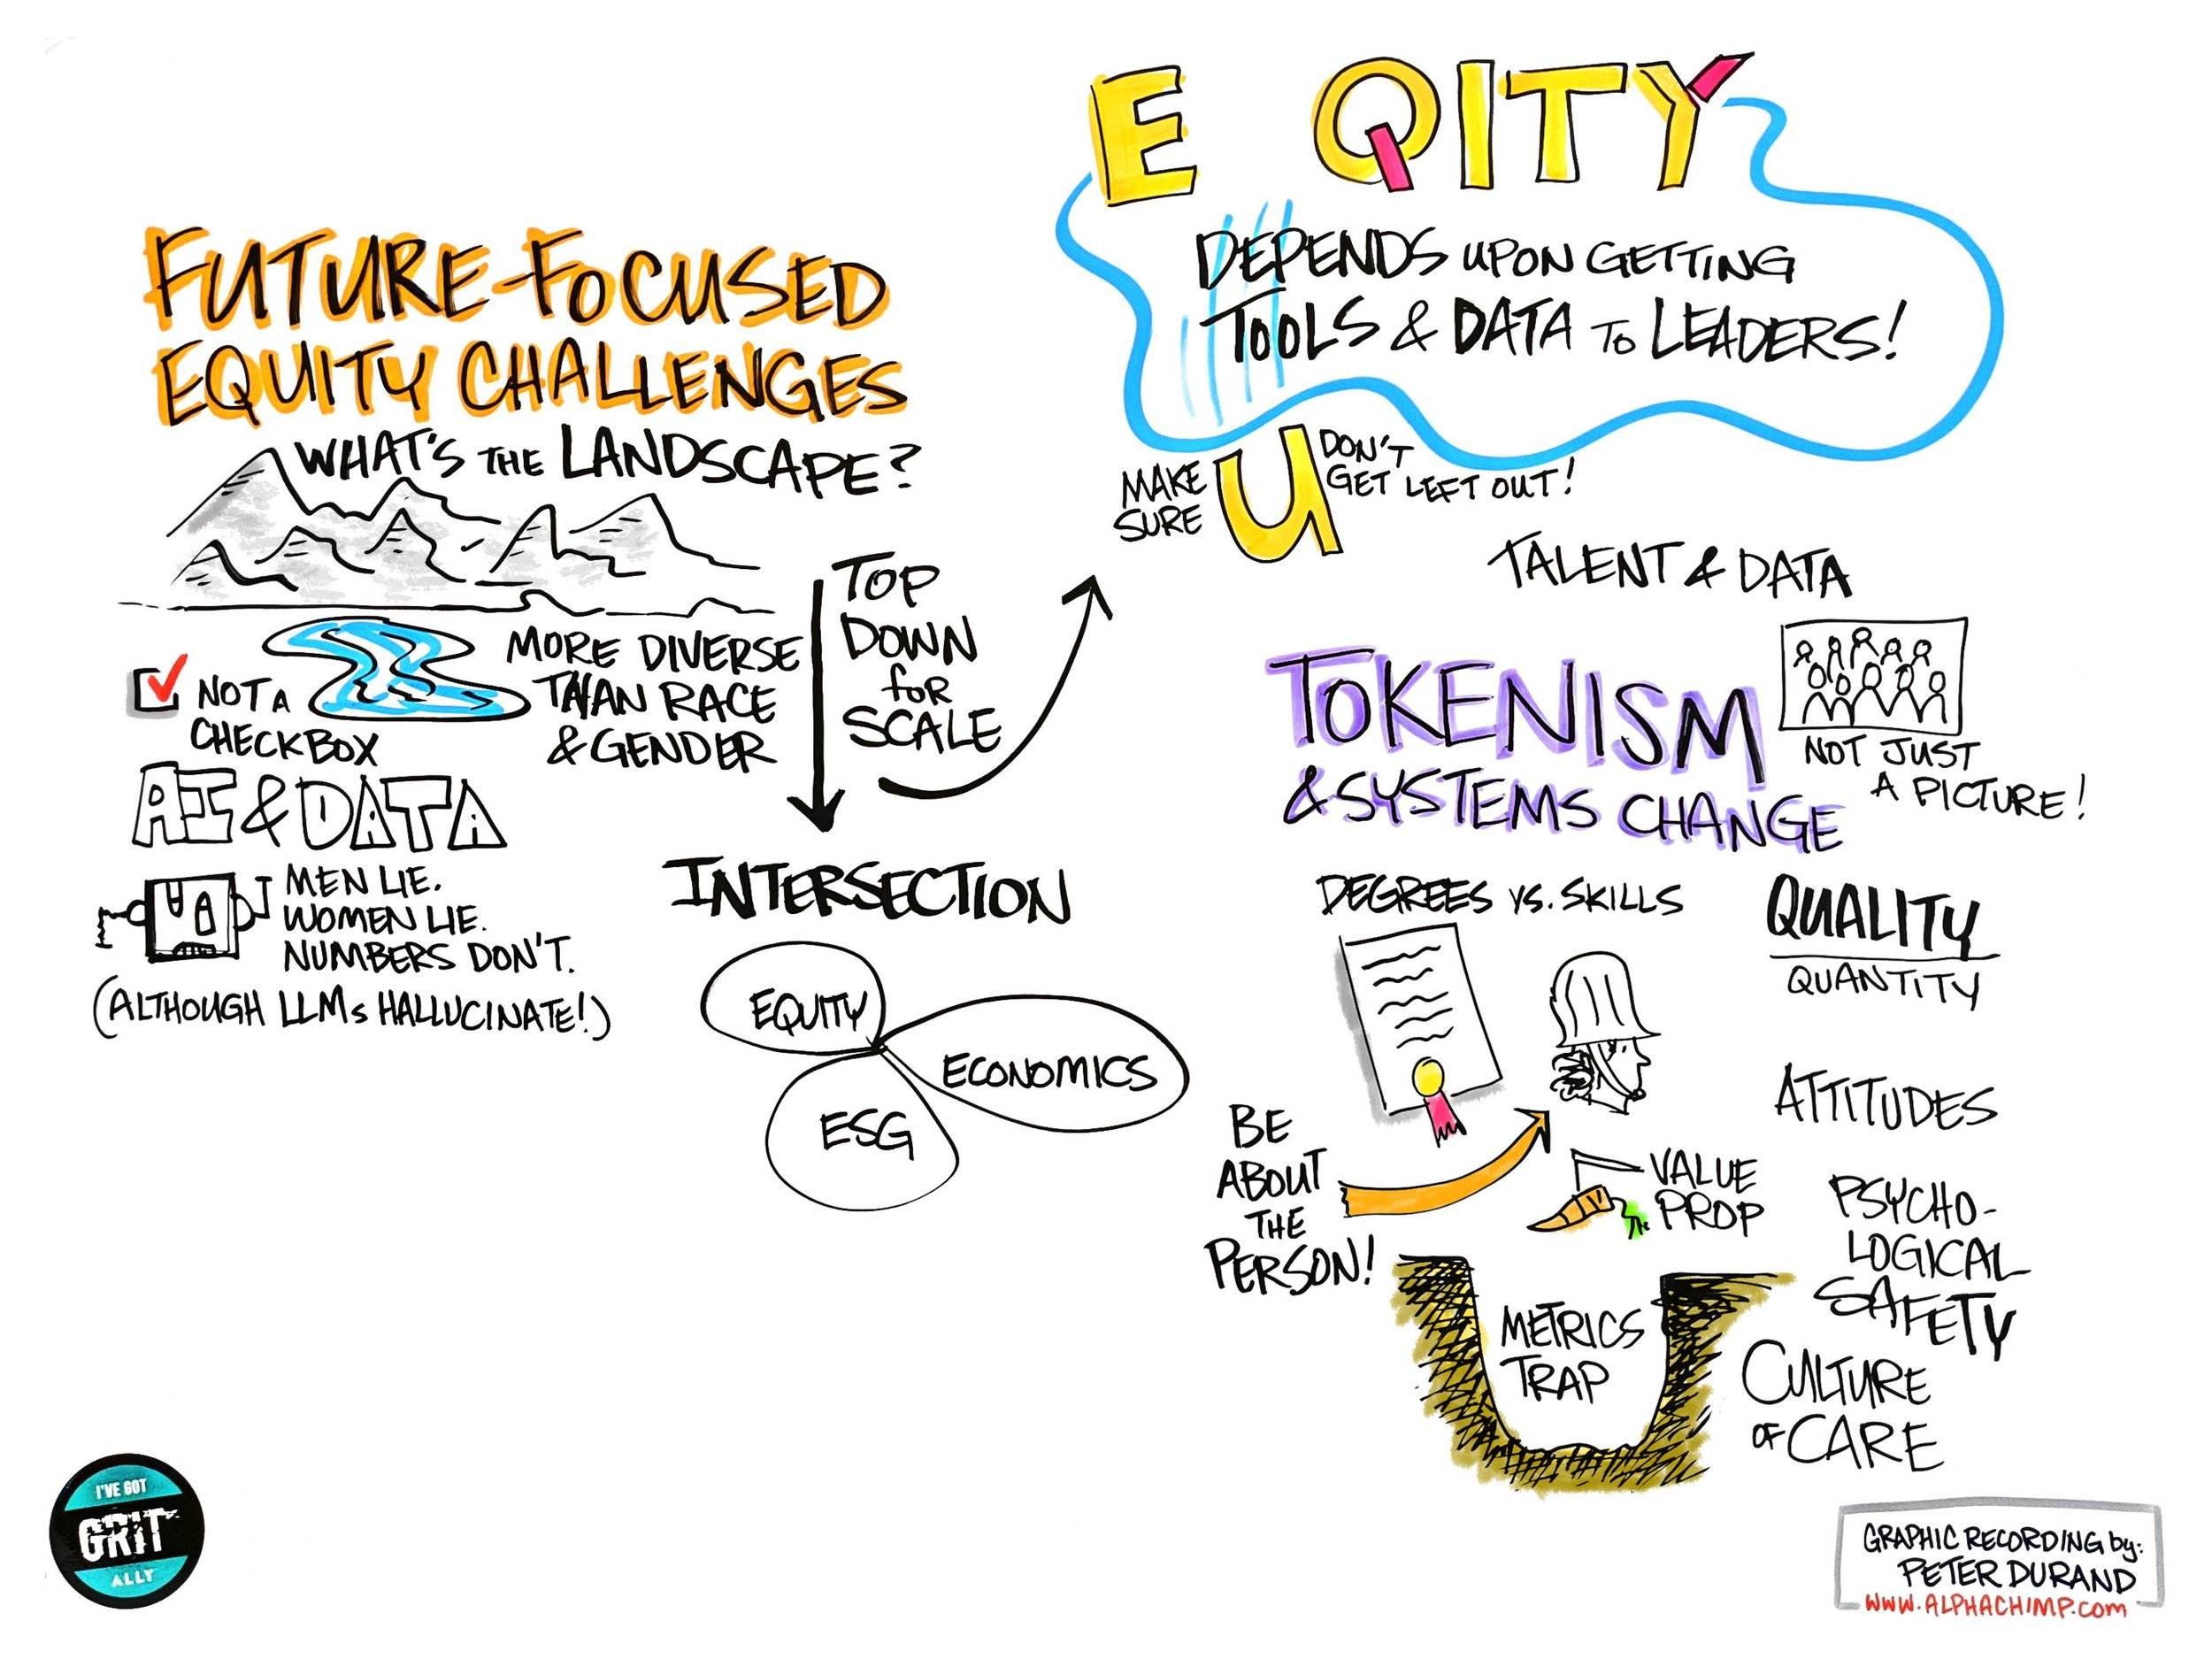 FUTURE-FOCUSED
EQUITY CHALLENGES
WHAT'S THE LANDSCAPE?
NOT A
CHECKBOX
MORE DIVERSE
THAN RACE
& GENDER
TOP
DOWN
FOR
SCALE
AI & DATA
MEN LIE.
WOMEN LIE.
NUMBERS DON'T.
(ALTHOUGH LLMs HALLUCINATE!)
INTERSECTION
EQUITY
ECONOMICS
ESG
E QITY
DEPENDS UPON GETTING
TOOLS & DATA TO LEADERS!
MAKE
SURE
U
DON'T
GET LEFT OUT!
TALENT & DATA
TOKENISM
& SYSTEMS CHANGE
NOT JUST
A PICTURE!
DEGREES VS. SKILLS
QUALITY
QUANTITY
ATTITUDES
BE
ABOUT
THE
PERSON!
VALUE
PROP
METRICS
TRAP
PSYCHO-
LOGICAL
SAFETY
CULTURE
OF CARE
I'VE GOT
GRIT
ALLY
GRAPHIC RECORDING by:
PETER DURAND
WWW.ALPHACHIMP.COM